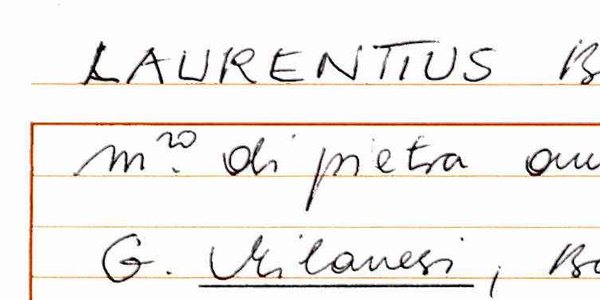 LAURENTIUS B
m.ro di pietra
G. Milanesi, Bo